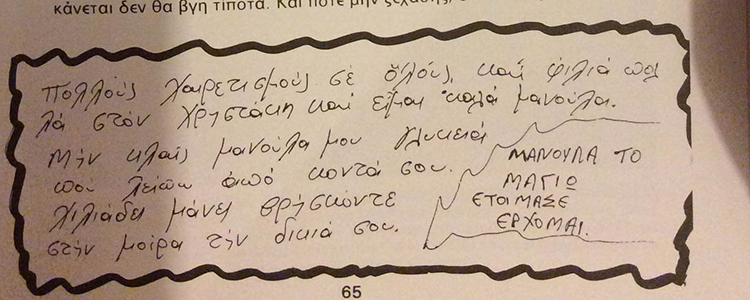 κάνεται δεν θα βγη τίποτα. Και ποτέ μην ξεχάσης,
Πολλούς χαιρετισμούς σέ όλους, καί φιλιά πολ
λά στόν χρηστάκη καί είμαι καλά μανούλα.
Μήν κλαίς μανούλα μου γλυκειά
πού λείπω από κοντά σου.
χιλιάδες μάνες βρήσκοντε
στήν μοίρα τήν δικιά σου.
ΜΑΝΟΥΛΑ ΤΟ
ΜΑΓΙΩ
ΕΤΟΙΜΑΣΕ
ΕΡΧΟΜΑΙ.
65